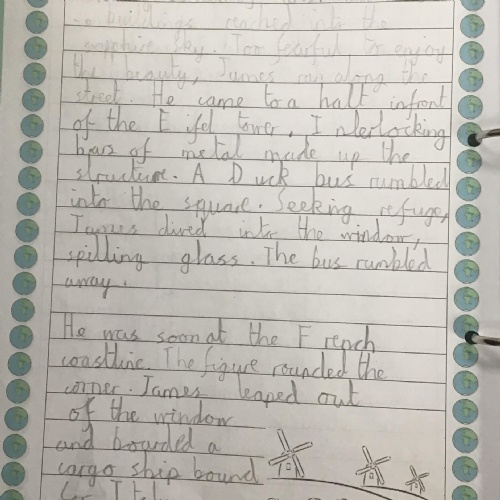 buildings reached into the
sapphire sky. Too fearful to enjoy
the beauty, James ran along the
street. He came to a halt infront
of the Eifel tower. Interlocking
bars of metal made up the
structure. A Duck bus rumbled
into the squad. Seeking refuge,
James dived into the window,
spilling glass. The bus rumbled
away.
He was soon at the French
coastline. The figure rounded the
corner. James leaped out
of the window
and boarded a
cargo ship bound